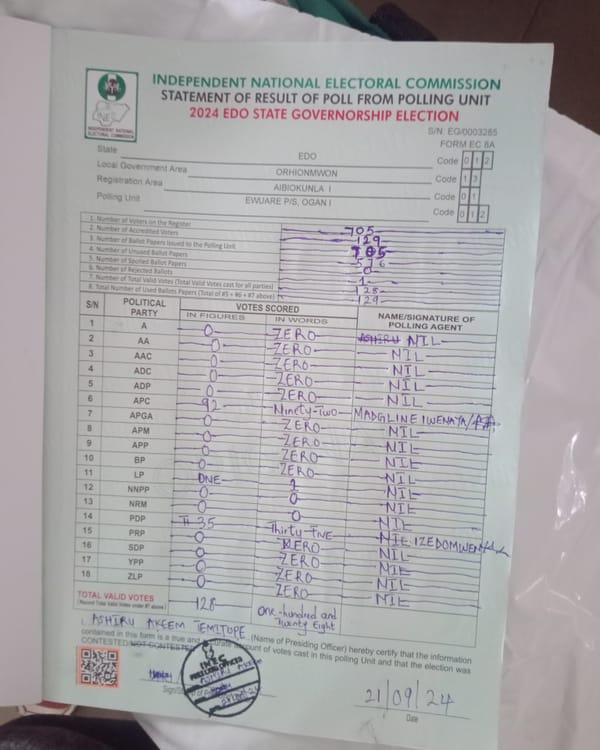 INDEPENDENT NATIONAL ELECTORAL COMMISSION
STATEMENT OF RESULT OF POLL FROM POLLING UNIT
2024 EDO STATE GOVERNORSHIP ELECTION
INEC
INDEPENDENT NATIONAL ELECTORAL COMMISSION
S/N: EG/0003285
FORM EC 8A
State EDO Code 0 1 2
Local Government Area ORHIONMWON Code 1 3
Registration Area AIBIOKUNLA I Code 0 1
Polling Unit EWUARE P/S, OGAN I Code 0 1 2
1. Number of Voters on the Register 705
2. Number of Accredited Voters 129
3. Number of Ballot Papers Issued to the Polling Unit 705
4. Number of Unused Ballot Papers 576
5. Number of Spoiled Ballot Papers 0
6. Number of Rejected Ballots 1
7. Number of Total Valid Votes (Total Valid Votes cast for all parties) 128
8. Total Number of Used Ballots Papers (Total of #5 + #6 + #7 above) 129
S/N POLITICAL PARTY VOTES SCORED NAME/SIGNATURE OF POLLING AGENT
IN FIGURES IN WORDS
1 A 0 ZERO ASHIRU NIL
2 AA 0 ZERO NIL
3 AAC 0 ZERO NIL
4 ADC 0 ZERO NIL
5 ADP 0 ZERO NIL
6 APC 92 Ninety-Two MADGLINE IWENAYA
7 APGA 0 ZERO NIL
8 APM 0 ZERO NIL
9 APP 0 ZERO NIL
10 BP 0 ZERO NIL
11 LP ONE 1 NIL
12 NNPP 0 0 NIL
13 NRM 0 0 NIL
14 PDP 35 Thirty-Five NIL IZEDOMWEN
15 PRP 0 ZERO NIL
16 SDP 0 ZERO NIL
17 YPP 0 ZERO NIL
18 ZLP 0 ZERO NIL
TOTAL VALID VOTES 128 One-hundred and Twenty Eight
(Record Total Valid Votes under #7 above)
I, ASHIRU AKEEM TEMITOPE (Name of Presiding Officer) hereby certify that the information
contained in this form is a true and accurate account of votes cast in this polling Unit and that the election was
CONTESTED/NOT CONTESTED
INEC
PRESIDING OFFICER
21/09/24
Date